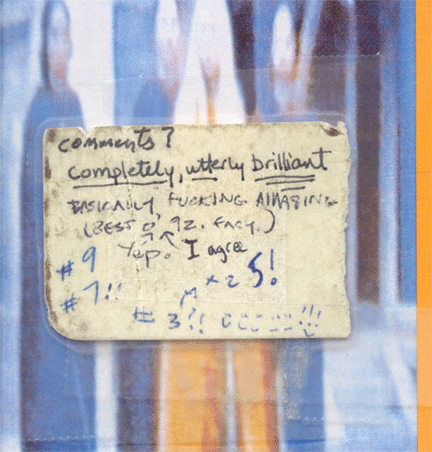 comments?
completely, utterly brilliant
BASICALLY FUCKING AMAZING
(BEST O' 92. EASY.)
Yep. I agree
#9
x2 5!
#7!!
# 3?!